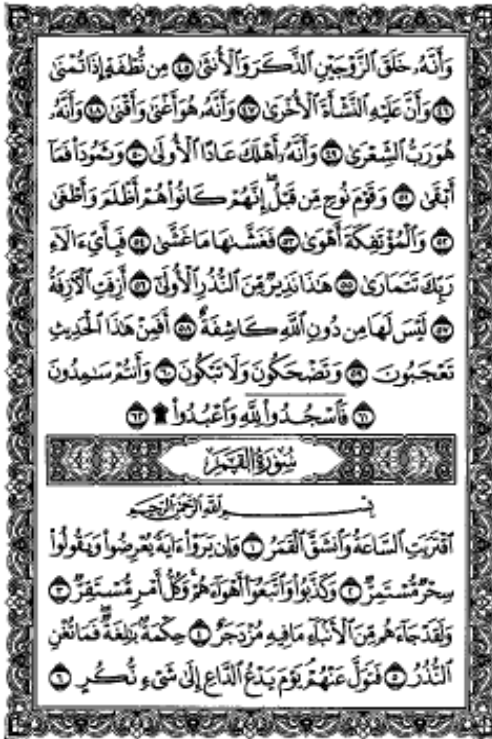 وَأَنَّهُۥ خَلَقَ ٱلزَّوْجَيْنِ ٱلذَّكَرَ وَٱلْأُنثَىٰ ٤٥ مِن نُّطْفَةٍ إِذَا تُمْنَىٰ
٤٦ وَأَنَّ عَلَيْهِ ٱلنَّشْأَةَ ٱلْأُخْرَىٰ ٤٧ وَأَنَّهُۥ هُوَ أَغْنَىٰ وَأَقْنَىٰ ٤٨ وَأَنَّهُۥ
هُوَ رَبُّ ٱلشِّعْرَىٰ ٤٩ وَأَنَّهُۥٓ أَهْلَكَ عَادًا ٱلْأُولَىٰ ٥٠ وَثَمُودَا۟ فَمَآ
أَبْقَىٰ ٥١ وَقَوْمَ نُوحٍ مِّن قَبْلُ إِنَّهُمْ كَانُوا۟ هُمْ أَظْلَمَ وَأَطْغَىٰ
٥٢ وَٱلْمُؤْتَفِكَةَ أَهْوَىٰ ٥٣ فَغَشَّىٰهَا مَا غَشَّىٰ ٥٤ فَبِأَىِّ ءَالَآءِ
رَبِّكَ تَتَمَارَىٰ ٥٥ هَٰذَا نَذِيرٌ مِّنَ ٱلنُّذُرِ ٱلْأُولَىٰٓ ٥٦ أَزِفَتِ ٱلْآزِفَةُ
٥٧ لَيْسَ لَهَا مِن دُونِ ٱللَّهِ كَاشِفَةٌ ٥٨ أَفَمِنْ هَٰذَا ٱلْحَدِيثِ
تَعْجَبُونَ ٥٩ وَتَضْحَكُونَ وَلَا تَبْكُونَ ٦٠ وَأَنتُمْ سَٰمِدُونَ
٦١ فَٱسْجُدُوا۟ لِلَّهِ وَٱعْبُدُوا۟ ۩ ٦٢
سُورَةُ القَمَرِ
بِسْمِ ٱللَّهِ ٱلرَّحْمَٰنِ ٱلرَّحِيمِ
ٱقْتَرَبَتِ ٱلسَّاعَةُ وَٱنشَقَّ ٱلْقَمَرُ ١ وَإِن يَرَوْا۟ ءَايَةً يُعْرِضُوا۟ وَيَقُولُوا۟
سِحْرٌ مُّسْتَمِرٌّ ٢ وَكَذَّبُوا۟ وَٱتَّبَعُوٓا۟ أَهْوَآءَهُمْ وَكُلُّ أَمْرٍ مُّسْتَقِرٌّ ٣
وَلَقَدْ جَآءَهُم مِّنَ ٱلْأَنۢبَآءِ مَا فِيهِ مُزْدَجَرٌ ٤ حِكْمَةٌۢ بَٰلِغَةٌ فَمَا تُغْنِ
ٱلنُّذُرُ ٥ فَتَوَلَّ عَنْهُمْ يَوْمَ يَدْعُ ٱلدَّاعِ إِلَىٰ شَىْءٍ نُّكُرٍ ٦